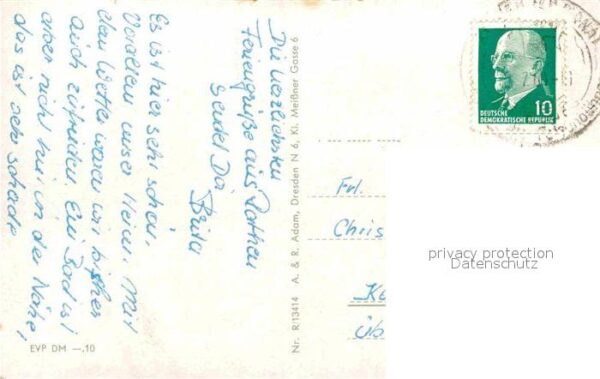 Die herzlichsten
Feriengrüße aus Rathen
sendet Dir
Brita
Es ist hier sehr schön.
Vor allem unser Heim. Mit
dem Wetter waren wir bisher
auch zufrieden. Ein Bad ist
aber nicht hier in der Nähe,
das ist sehr schade
EVP DM —,10
Nr. R13414 A. & R. Adam, Dresden N 6, Kl. Meißner Gasse 6
10
DEUTSCHE
DEMOKRATISCHE REPUBLIK
Frl.
Chris
üb
privacy protection
Datenschutz